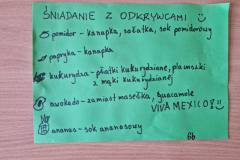 ŚNIADANIE Z ODKRYWCAMI
pomidor - kanapka, sałatka, sok pomidorowy
papryka - kanapka
kukurydza - płatki kukurydziane, placuszki
z mąki kukurydzianej
awokado - zamiast masełka, guacamole
VIVA MEXICO!
ananas - sok ananasowy
6b